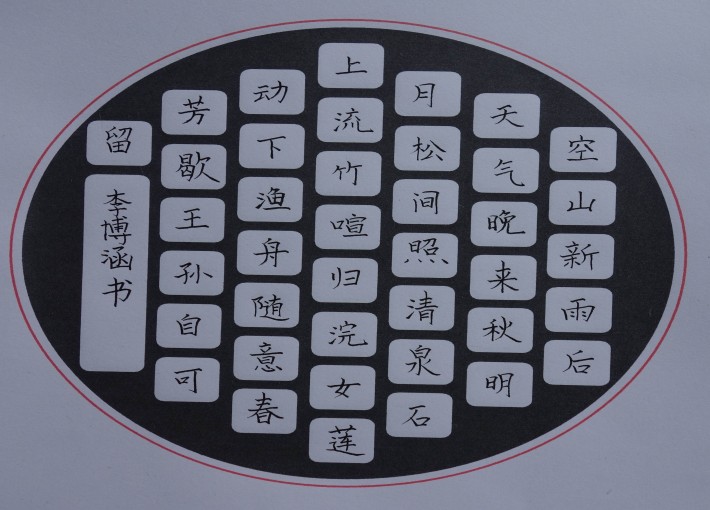 空山新雨后
天气晚来秋明
月松间照清泉石
上流竹喧归浣女莲
动下渔舟随意春
芳歇王孙自可
留
李博涵书